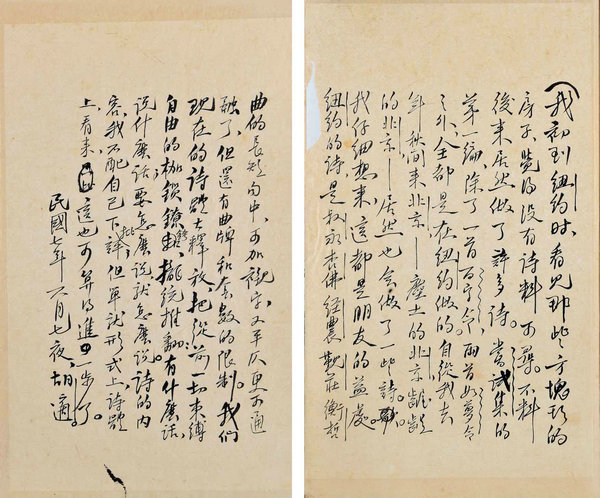 (我初到紐約时，看見那些方塊形的
房子，覺得沒有詩料可尋。不料
後来居然做了許多詩。嘗試集的
第一編，除了一首百字令，两首如夢令
之外，全部是在紐約做的。自從我去
年秋间来北京—塵土的北京，齷齪
的北京—居然也会做了一些詩。
我仔細想来，這都是朋友的益處。
紐約的詩是叔永杏佛經農覲莊衡哲
曲的長短句中，可加襯字，又平仄更可通
融了，但還有曲牌和套數的限制。我們
現在的詩體大釋放，把從前一切束縛
自由的枷鎖鐐銬，攏統推翻，有什麽話，
说什麽話；要怎麽说，就怎麽说。詩的内
容，我不配自己下批評，但單就形式上詩體
上看来，這也可算得進一步了。
民國七年六月七夜，胡適。